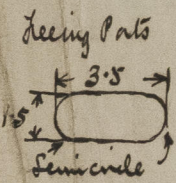 Freeing Ports
3·5
1·5
Semicircle